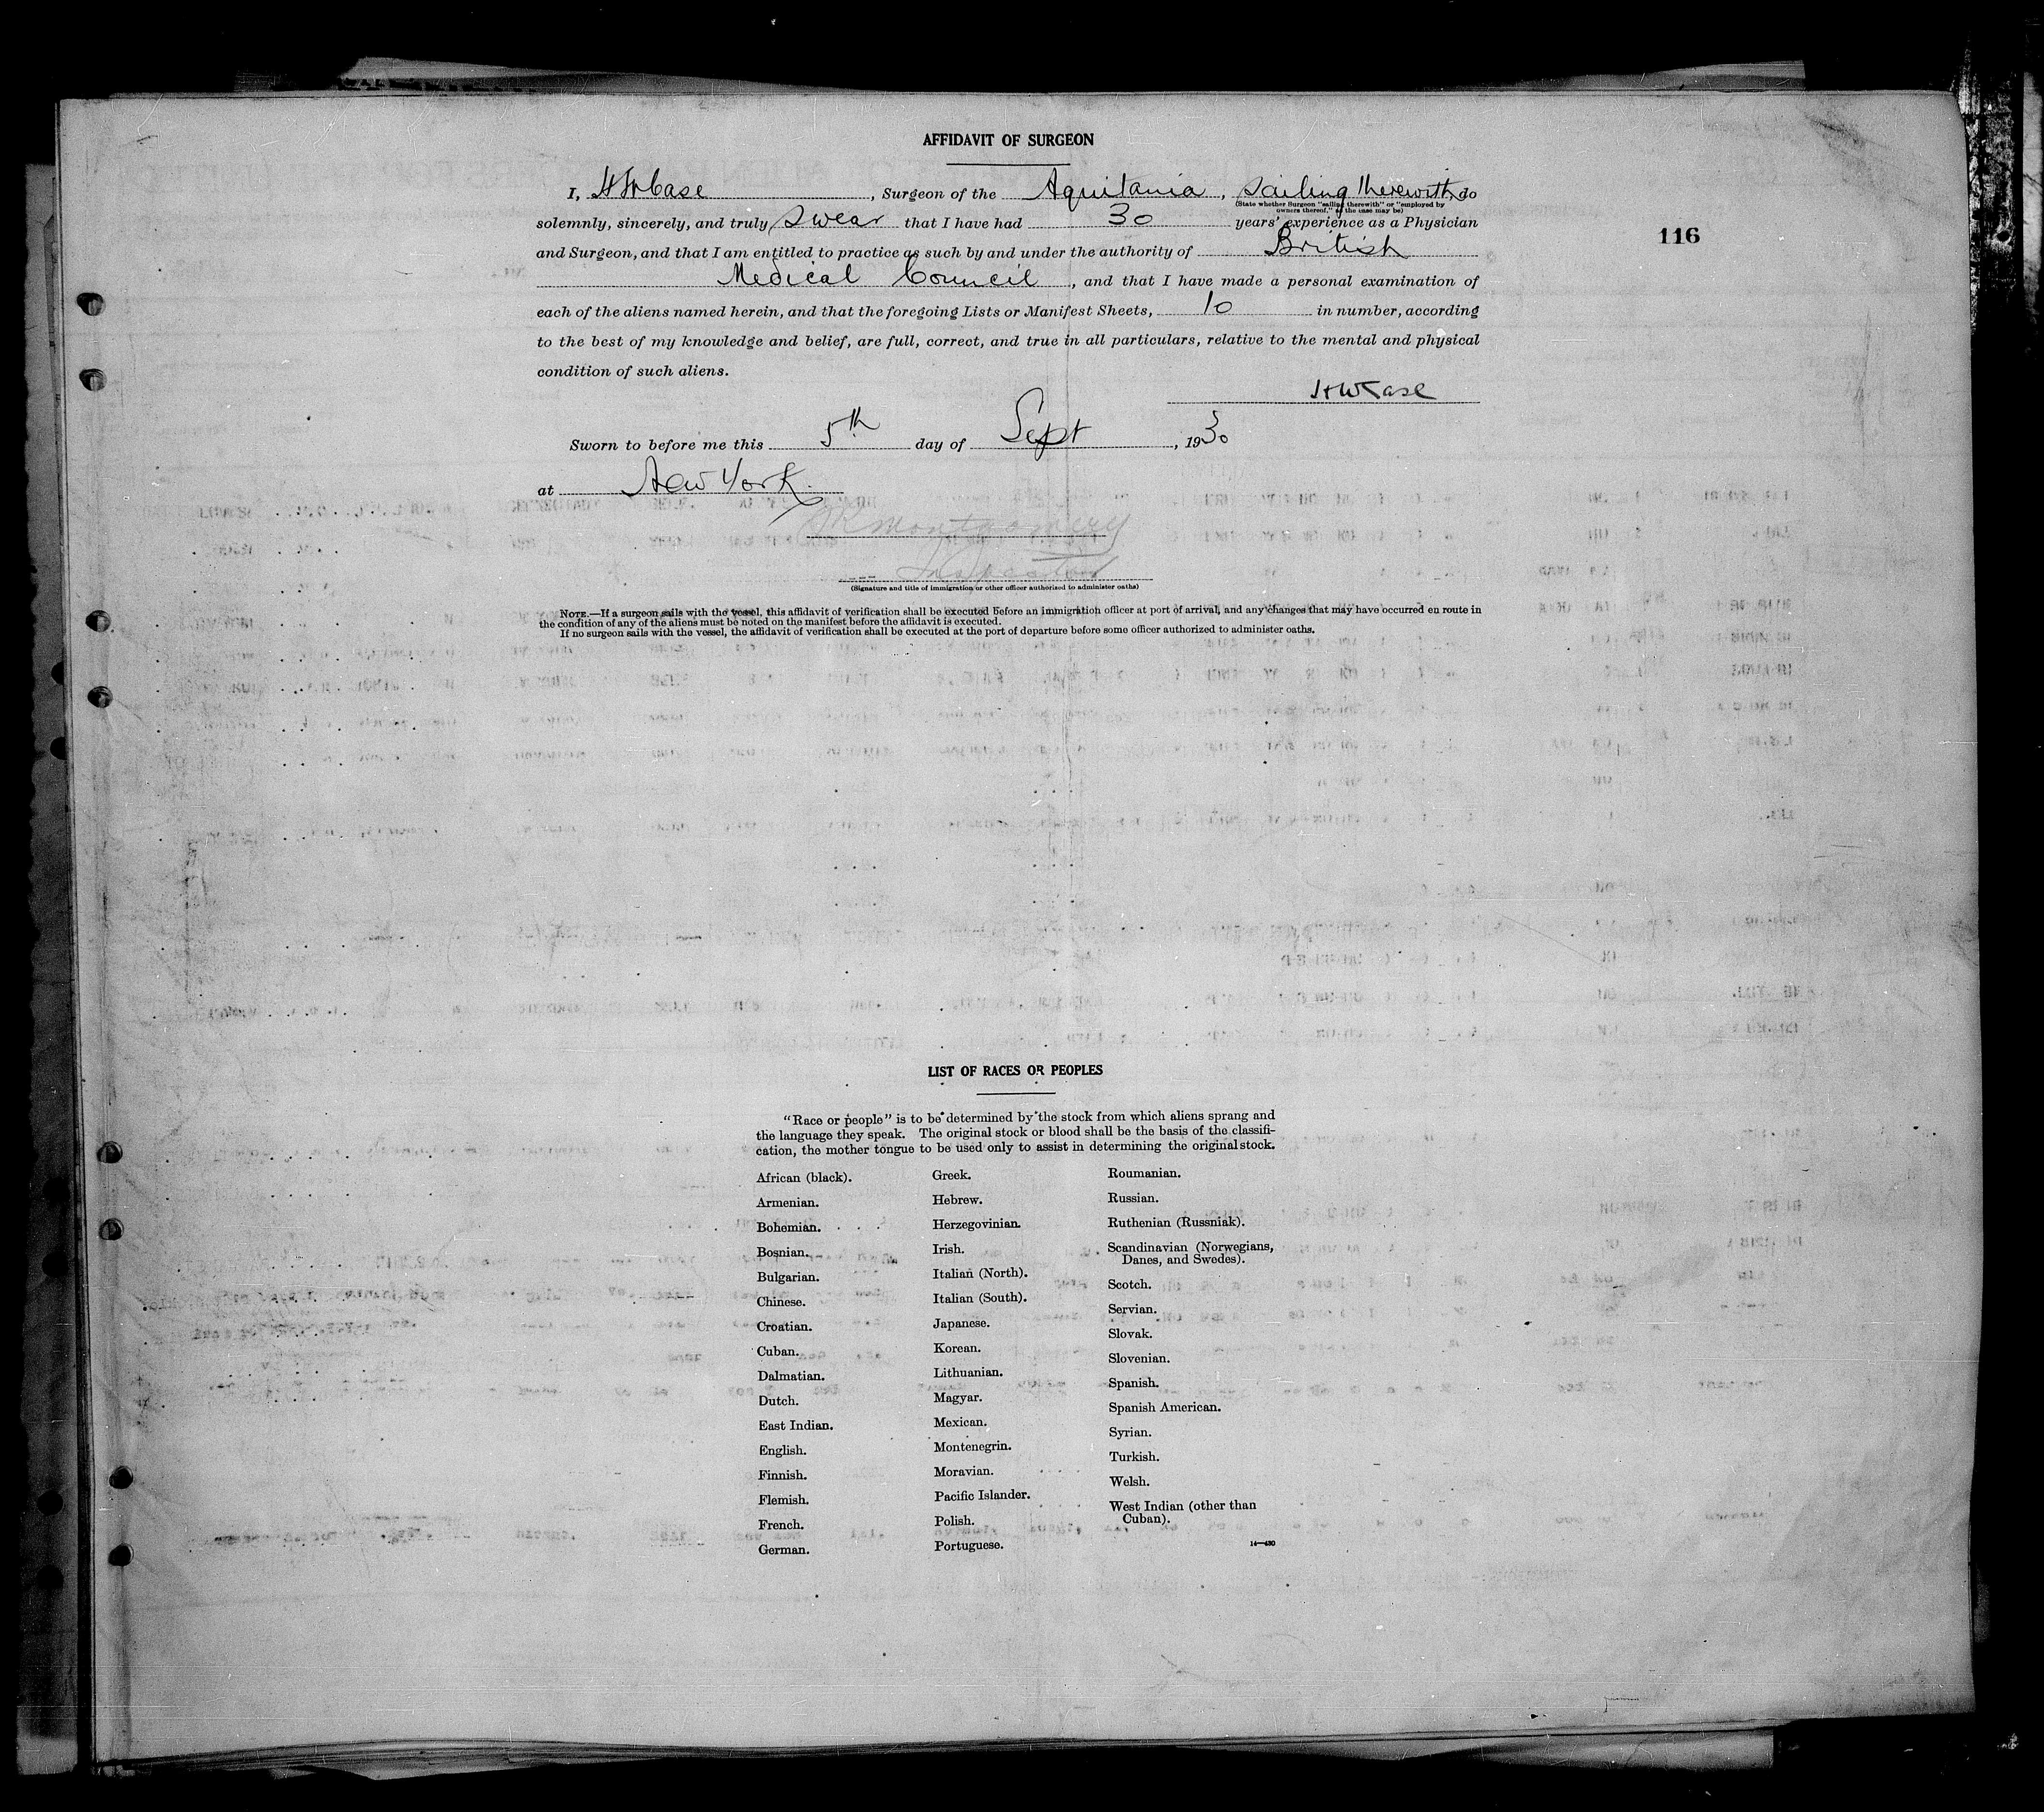 AFFIDAVIT OF SURGEON
I, H W Case, Surgeon of the Aquitania, Sailing therewith, do
(State whether Surgeon "sailing therewith" or "employed by
owners thereof," as the case may be)
solemnly, sincerely, and truly swear that I have had 30 years' experience as a Physician
116
and Surgeon, and that I am entitled to practice as such by and under the authority of British
Medical Council, and that I have made a personal examination of
each of the aliens named herein, and that the foregoing Lists or Manifest Sheets, 10 in number, according
to the best of my knowledge and belief, are full, correct, and true in all particulars, relative to the mental and physical
condition of such aliens.
H W Case
Sworn to before me this 5th day of Sept, 1930
at New York.
Montgomery
Inspector
(Signature and title of immigration or other officer authorized to administer oaths)
NOTE.—If a surgeon sails with the vessel, this affidavit of verification shall be executed before an immigration officer at port of arrival, and any changes that may have occurred en route in
the condition of any of the aliens must be noted on the manifest before the affidavit is executed.
If no surgeon sails with the vessel, the affidavit of verification shall be executed at the port of departure before some officer authorized to administer oaths.
LIST OF RACES OR PEOPLES
"Race or people" is to be determined by the stock from which aliens sprang and
the language they speak. The original stock or blood shall be the basis of the classifi-
cation, the mother tongue to be used only to assist in determining the original stock.
African (black).
Armenian.
Bohemian.
Bosnian.
Bulgarian.
Chinese.
Croatian.
Cuban.
Dalmatian.
Dutch.
East Indian.
English.
Finnish.
Flemish.
French.
German.
Greek.
Hebrew.
Herzegovinian.
Irish.
Italian (North).
Italian (South).
Japanese.
Korean.
Lithuanian.
Magyar.
Mexican.
Montenegrin.
Moravian.
Pacific Islander.
Polish.
Portuguese.
Roumanian.
Russian.
Ruthenian (Russniak).
Scandinavian (Norwegians,
Danes, and Swedes).
Scotch.
Servian.
Slovak.
Slovenian.
Spanish.
Spanish American.
Syrian.
Turkish.
Welsh.
West Indian (other than
Cuban).
14—430